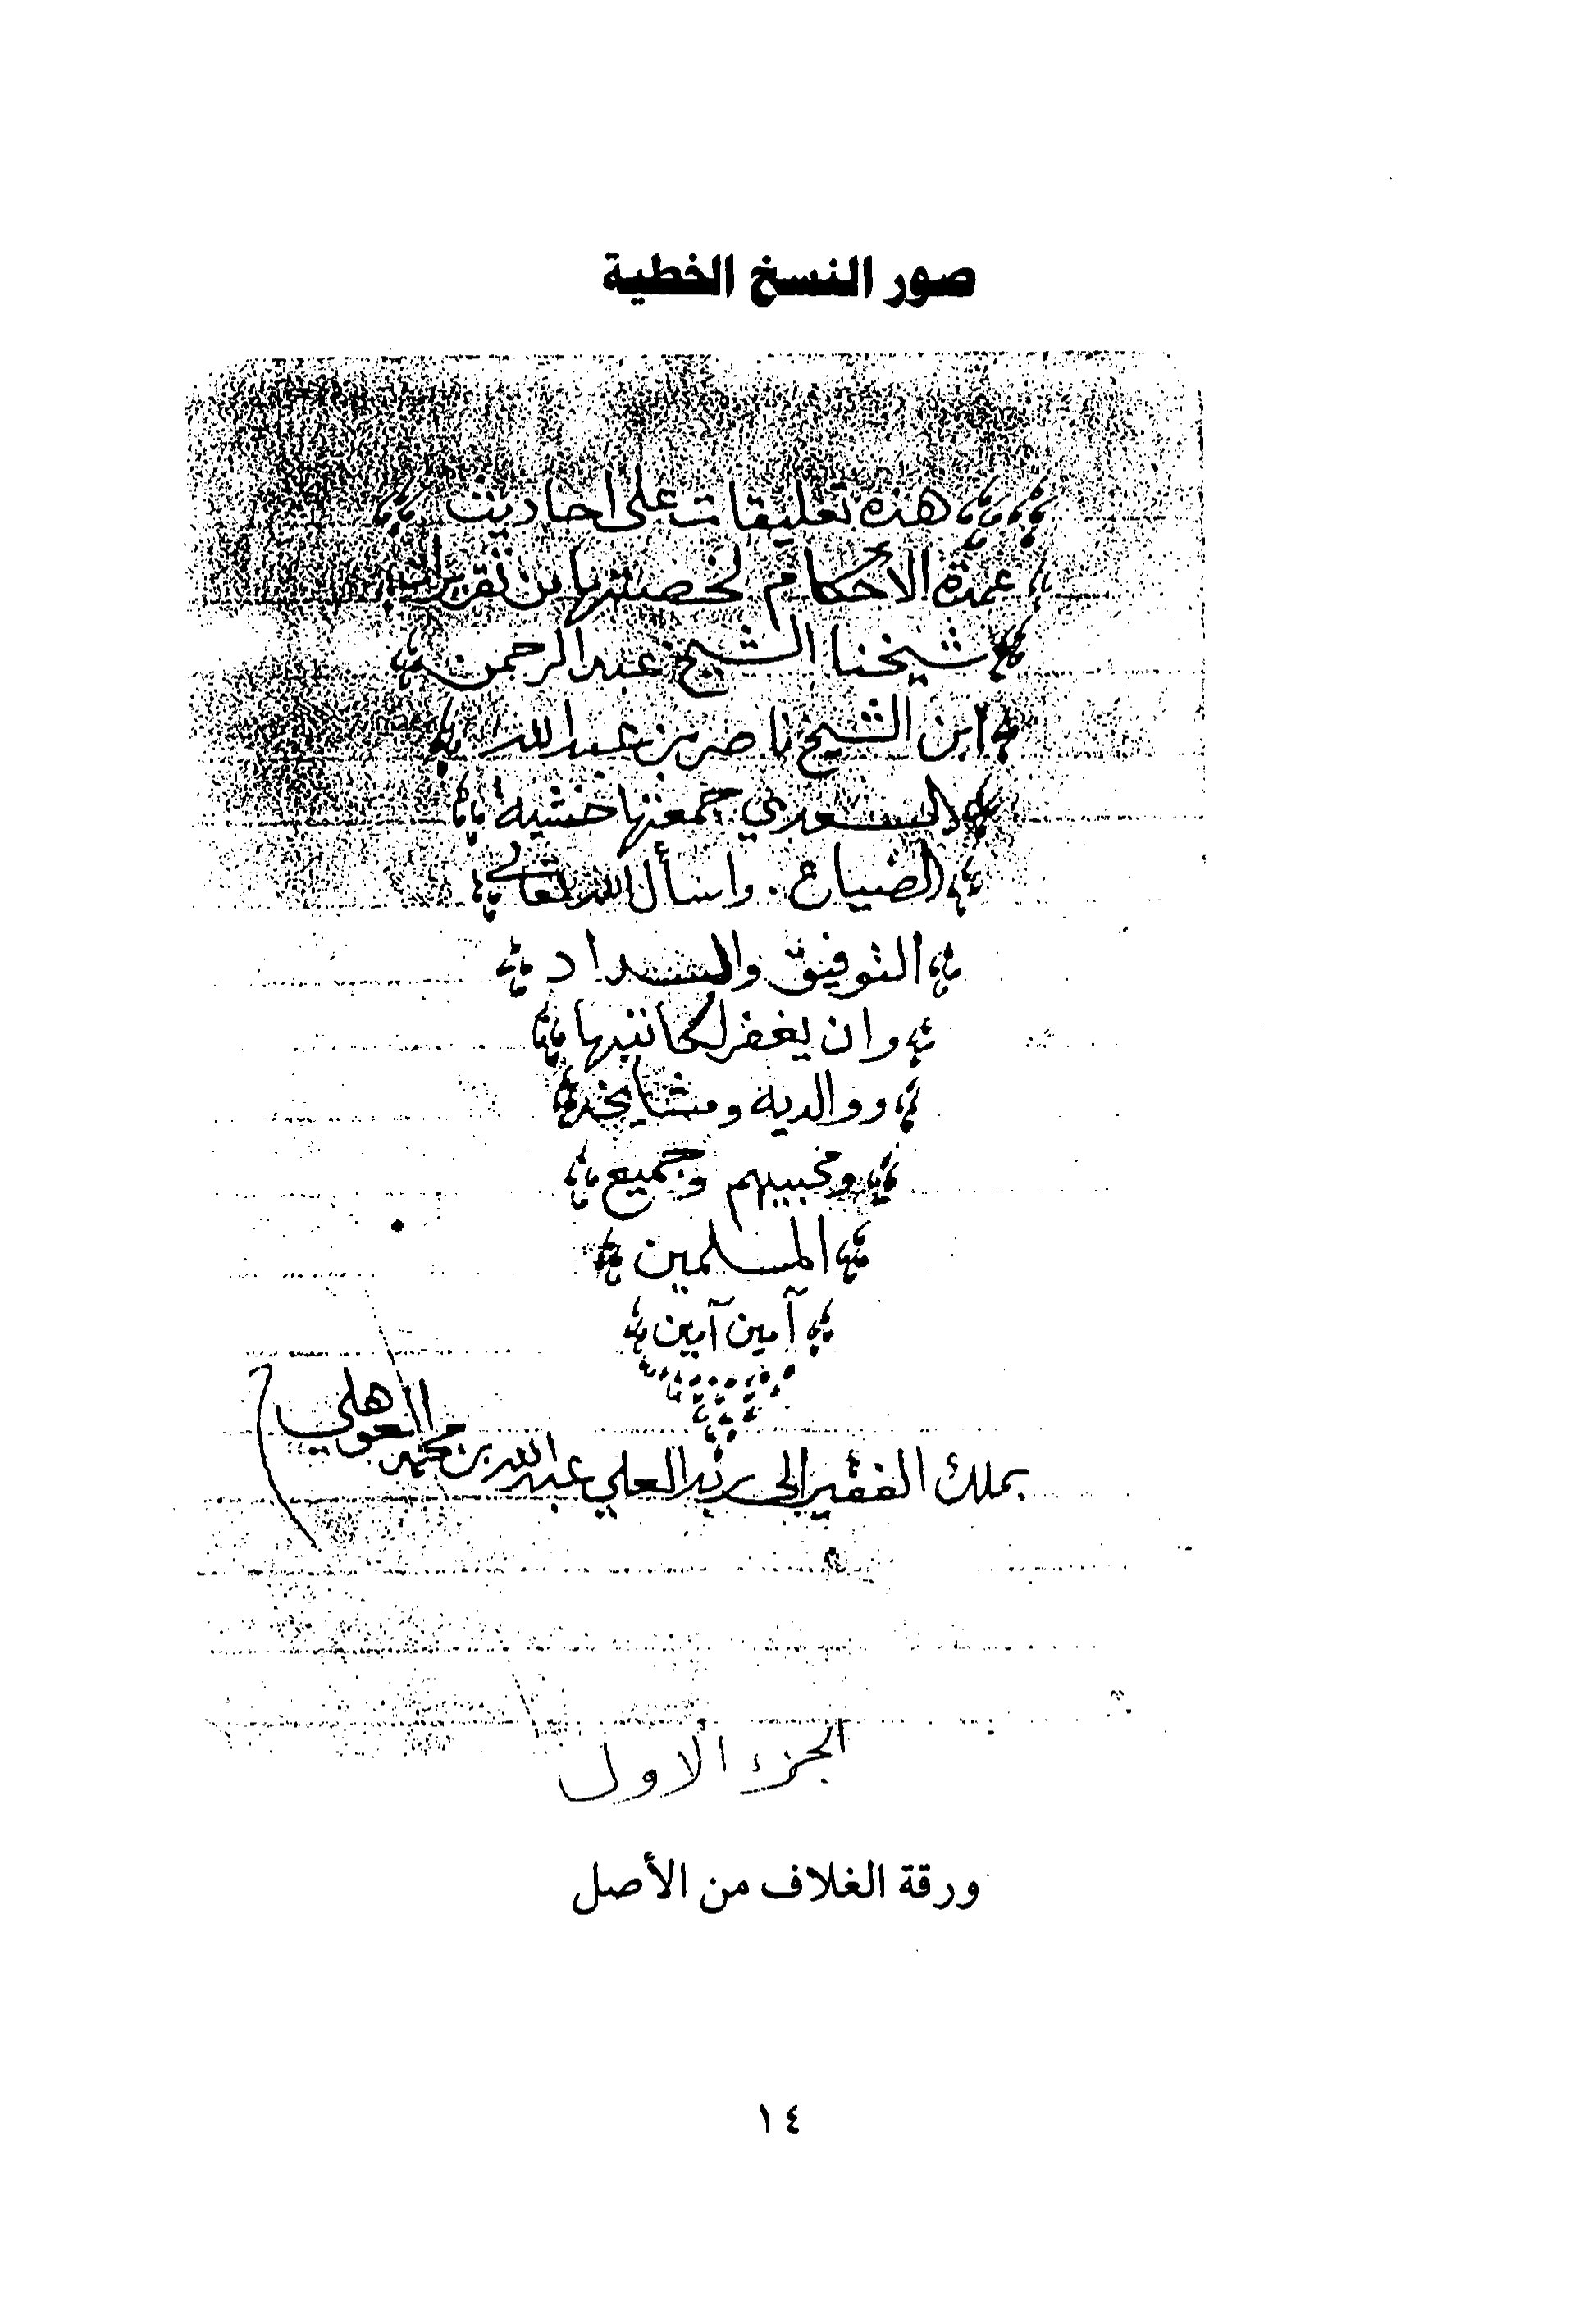 صور النسخ الخطية
هذه تعليقات على أحاديث
عمدة الأحكام لخصتها من تقريرات
شيخنا الشيخ عبد الرحمن
ابن الشيخ ناصر بن عبد الله
السعدي جمعتها خشية
الضياع. واسأل الله تعالى
التوفيق والسداد
وان يغفر لكاتبها
ووالديه ومشايخه
ومحبيهم وجميع
المسلمين
آمين آمين
بملك الفقير إلى ربه العلي عبد الله بن محمد العوهلي
الجزء الاول
ورقة الغلاف من الأصل
١٤